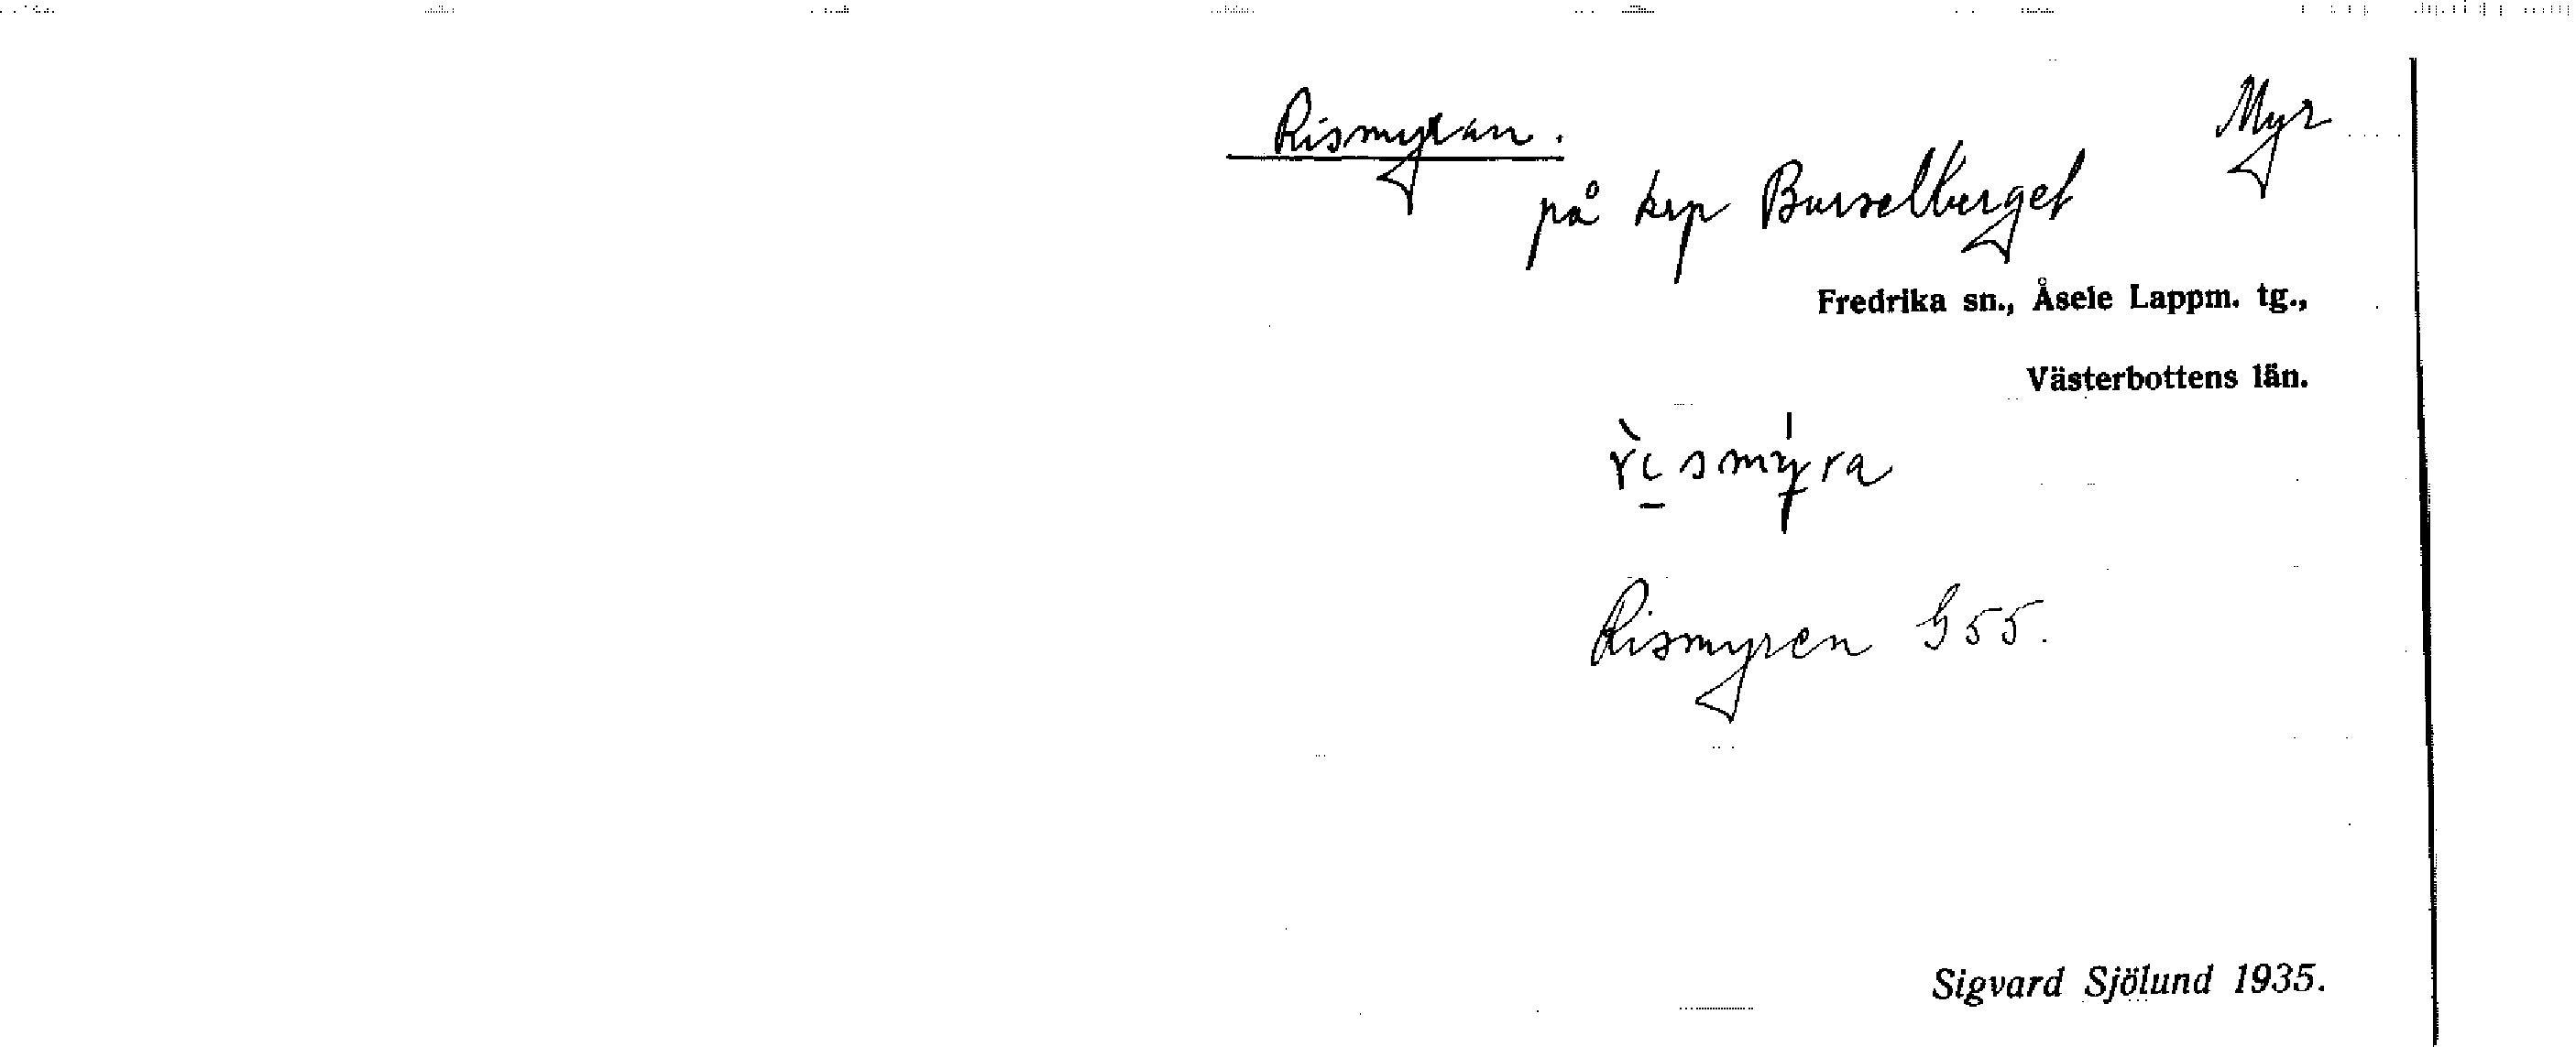 Rismyran.
Myr
på krp Bursellberget
Fredrika sn., Åsele Lappm. tg.,
Västerbottens län.
rìsmýra
Rismyren G55.
Sigvard Sjölund 1935.